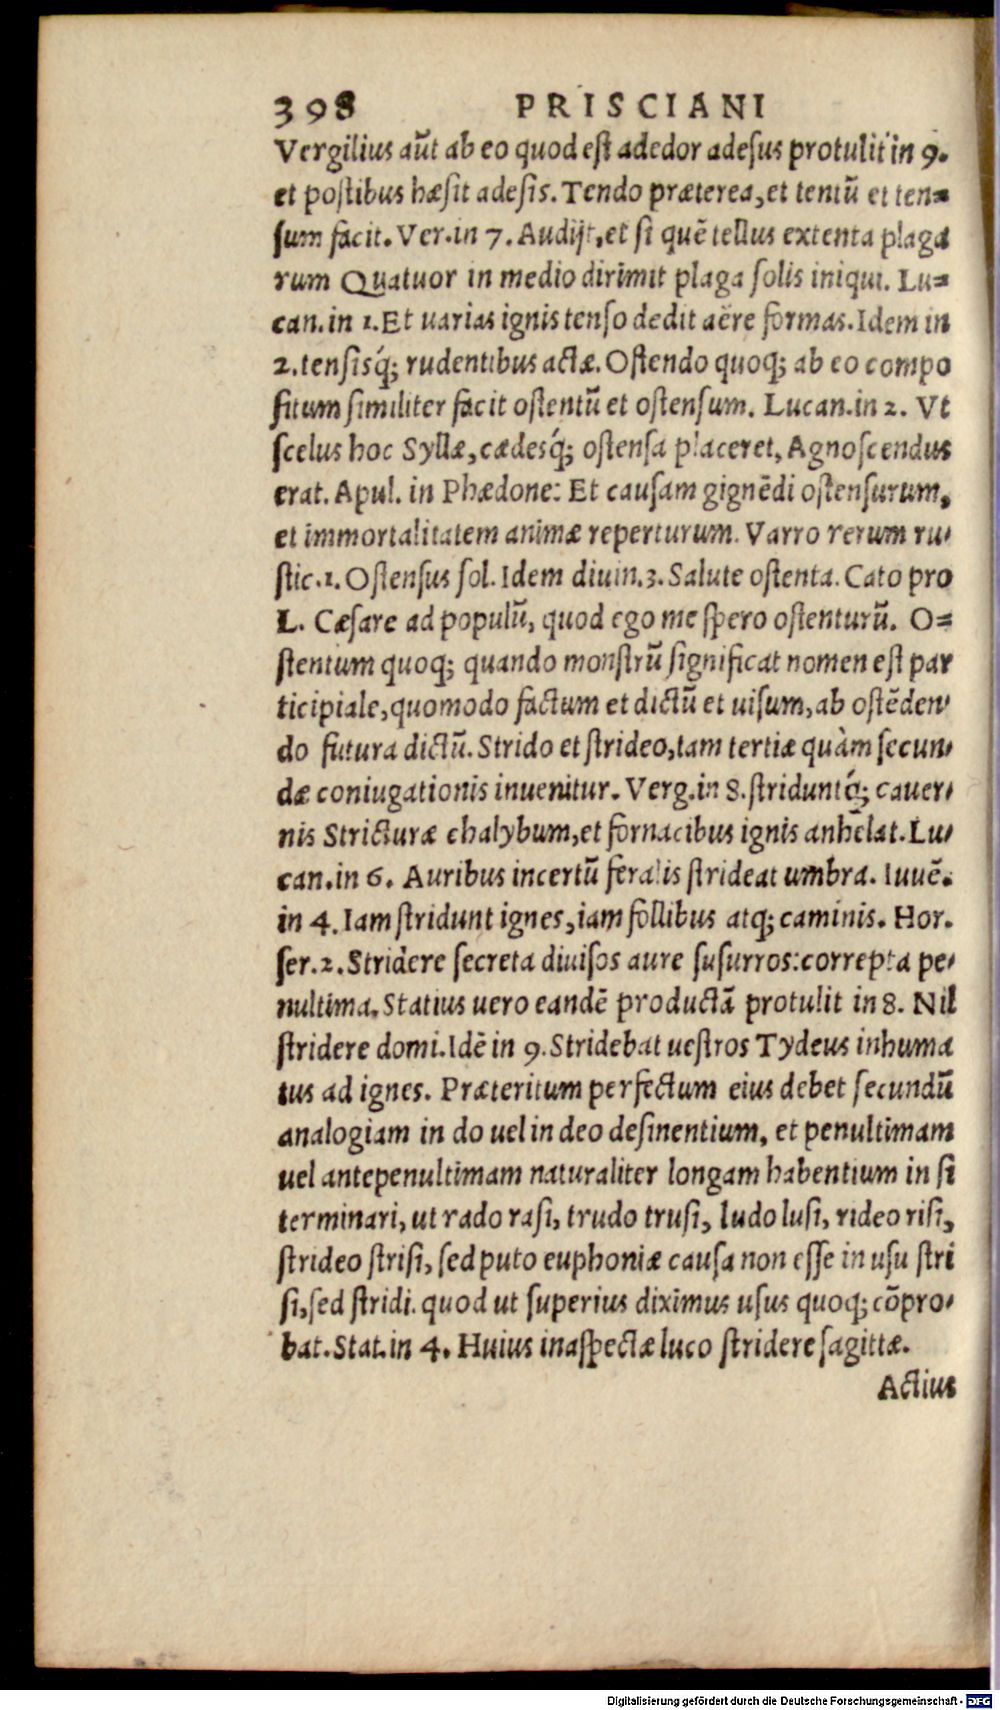 398 PRISCIANI
Vergilius aũt ab eo quod est adedor adesus protulit in 9.
et postibus hæsit adesis. Tendo præterea, et tentũ et ten=
sum facit. Ver. in 7. Audijt, et si quẽ tellus extenta plaga
rum Quatuor in medio dirimit plaga solis iniqui. Lu=
can. in 1. Et uarias ignis tenso dedit aëre formas. Idem in
2. tensisq́; rudentibus actæ. Ostendo quoq; ab eo compo
situm similiter facit ostentũ et ostensum. Lucan. in 2. Vt
scelus hoc Syllæ, cædesq́; ostensa placeret, Agnoscendus
erat. Apul. in Phædone: Et causam gignẽdi ostensurum,
et immortalitatem animæ reperturum. Varro rerum ru-
stic. 1. Ostensus sol. Idem diuin. 3. Salute ostenta. Cato pro
L. Cæsare ad populũ, quod ego me spero ostenturũ. O=
stentum quoq; quando monstrũ significat nomen est par
ticipiale, quomodo factum et dictũ et uisum, ab ostẽden-
do futura dictũ. Strido et strideo, tam tertiæ quàm secun-
dæ coniugationis inuenitur. Verg. in 8. striduntq́; cauer-
nis Stricturæ chalybum, et fornacibus ignis anhelat. Lu-
can. in 6. Auribus incertũ feralis strideat umbra. Iuuẽ.
in 4. Iam stridunt ignes, iam follibus atq; caminis. Hor.
ser. 2. Stridere secreta diuisos aure susurros: correpta pe-
nultima. Statius uero eandẽ productã protulit in 8. Nil
stridere domi. Idẽ in 9. Stridebat uestros Tydeus inhuma
tus ad ignes. Præteritum perfectum eius debet secundũ
analogiam in do uel in deo desinentium, et penultimam
uel antepenultimam naturaliter longam habentium in si
terminari, ut rado rasi, trudo trusi, ludo lusi, rideo risi,
strideo strisi, sed puto euphoniæ causa non esse in usu stri
si, sed stridi. quod ut superius diximus usus quoq; cõpro-
bat. Stat. in 4. Huius inaspectæ luco stridere sagittæ.
Actius
Digitalisierung gefördert durch die Deutsche Forschungsgemeinschaft - DFG